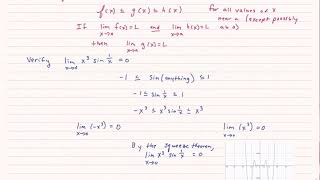 f(x) ≤ g(x) ≤ h(x) for all values of x
near a (except possibly
If lim f(x)=L and lim h(x)=L at a)
x→a x→a
then lim g(x)=L
x→a
Verify lim x³ sin 1/x = 0
x→0
-1 ≤ sin(anything) ≤ 1
-1 ≤ sin 1/x ≤ 1
-x³ ≤ x³ sin 1/x ≤ x³
lim (-x³) = 0 lim (x³) = 0
x→0 x→0
By the squeeze theorem,
lim x³ sin 1/x = 0
x→0